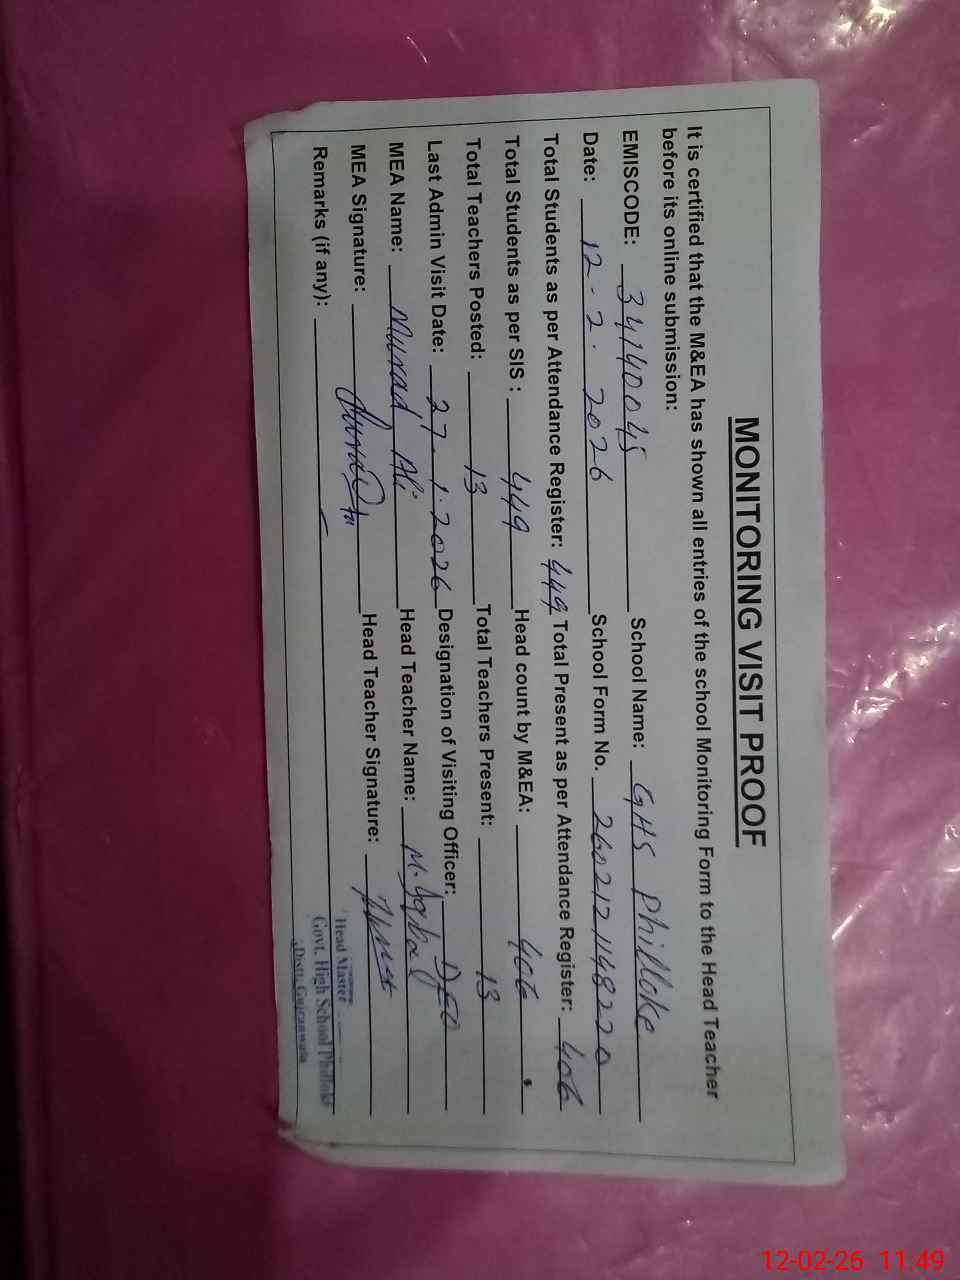 MONITORING VISIT PROOF
It is certified that the M&EA has shown all entries of the school Monitoring Form to the Head Teacher
before its online submission:
EMISCODE: 34140045 School Name: GHS Philloke
Date: 12-2-2026 School Form No.
Total Students as per Attendance Register: 449 Total Present as per Attendance Register: 406
Total Students as per SIS : 449 Head count by M&EA: 406
Total Teachers Posted: 13 Total Teachers Present: 13
Last Admin Visit Date: 27-1-2026 Designation of Visiting Officer: DEO
MEA Name: Murad Ali Head Teacher Name: M. Iqbal
MEA Signature: Head Teacher Signature:
Remarks (if any):
Head Master
Govt. High School Philloke
Distt. Gujranwala
12-02-26 11:49